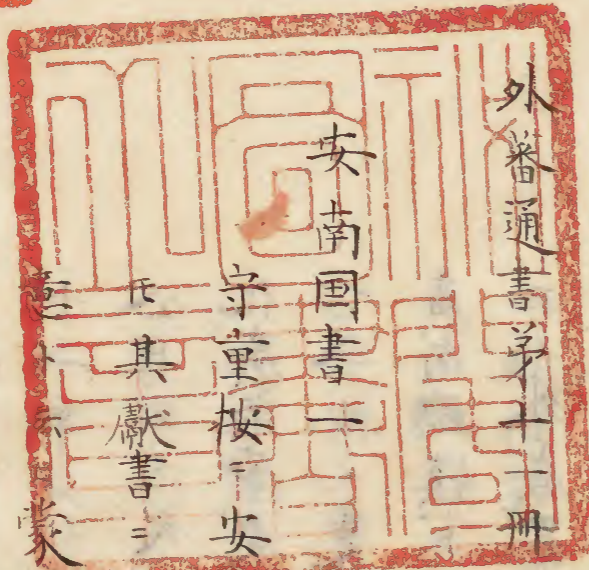 外番通書第十一冊
安南国書一
守重按ニ安
氏其獻書ニ
蒙